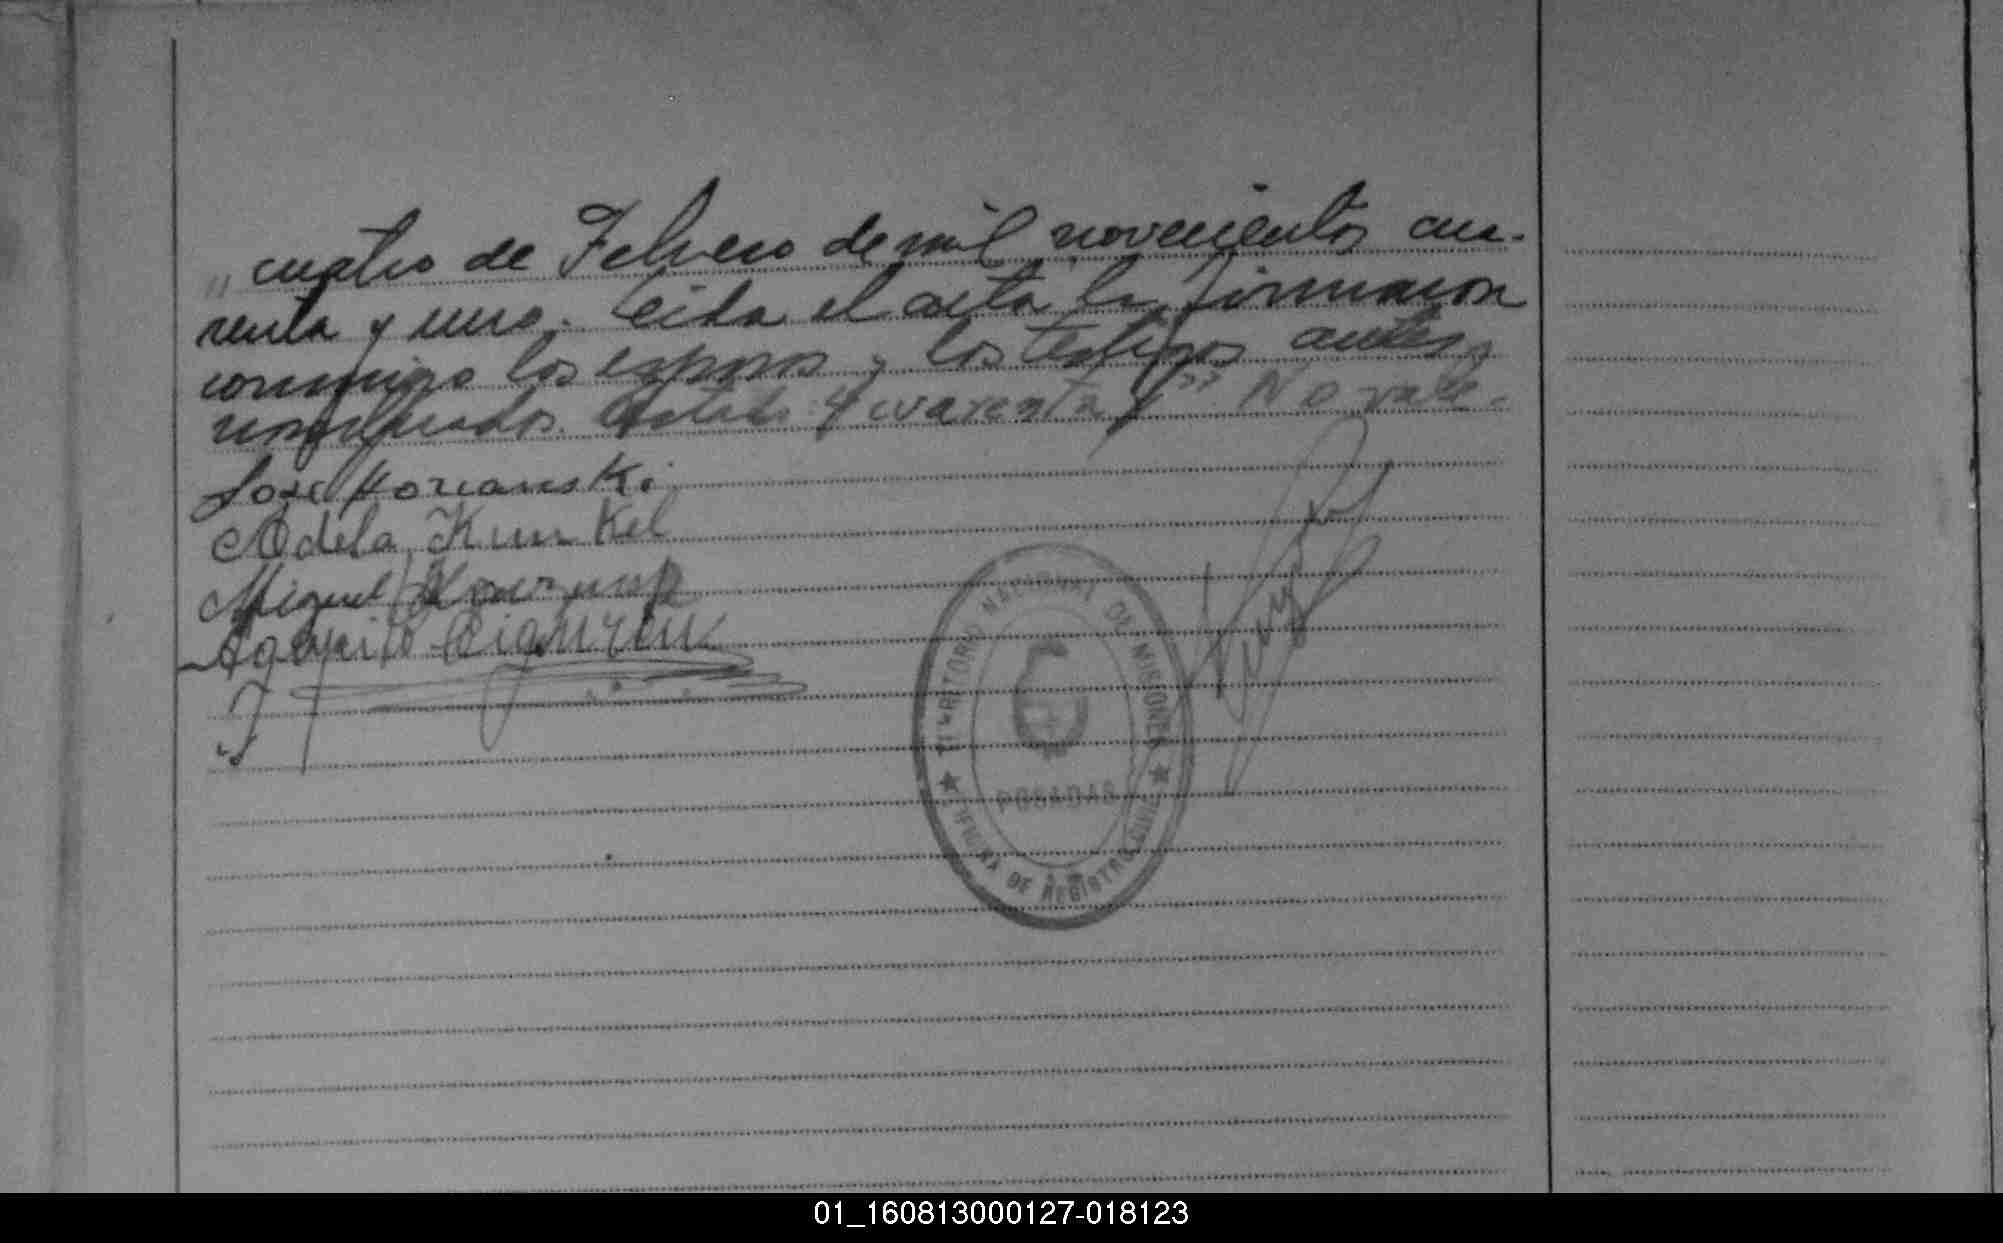 " cuatro de Febrero de mil novecientos cua-
renta y uno. Leida el acta la firmaron
conmigo los esposos y los testigos antes
nombrados. "cuarenta y" No vale.
José Korianski.
Adela Kunkel
Miguel
Agapito
TERRITORIO NACIONAL DE MISIONES
POSADAS
OFICINA DE REGISTRO CIVIL
01_160813000127-018123